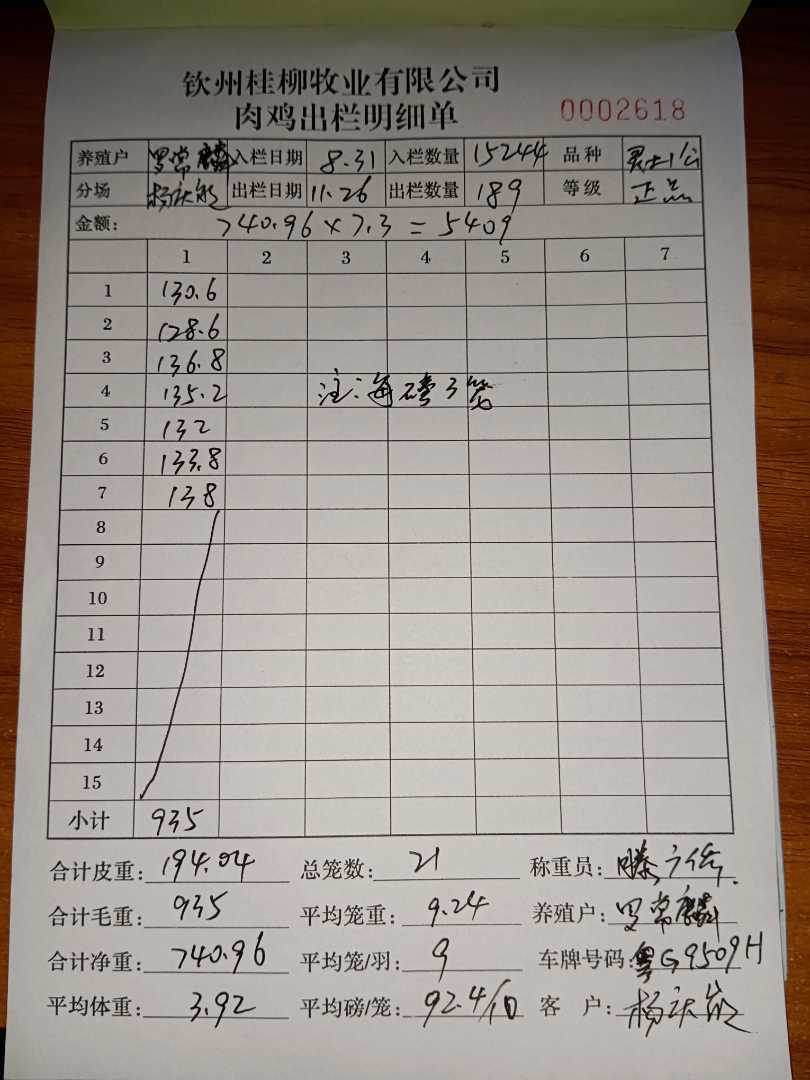 钦州桂柳牧业有限公司
肉鸡出栏明细单 0002618
养殖户 罗常麟 入栏日期 8.31 入栏数量 15244 品种 公
分场 杨庆 出栏日期 11.26 出栏数量 189 等级 正品
金额： 740.96×7.3=5409
1 2 3 4 5 6 7
1 130.6
2 128.6
3 136.8
4 135.2 注：每磅3笼
5 132
6 133.8
7 138
8
9
10
11
12
13
14
15
小计 935
合计皮重：194.04 总笼数：21 称重员：滕
合计毛重：935 平均笼重：9.24 养殖户：罗常麟
合计净重：740.96 平均笼/羽：9 车牌号码：粤G9509H
平均体重：3.92 平均磅/笼：92.4/10 客 户：杨庆